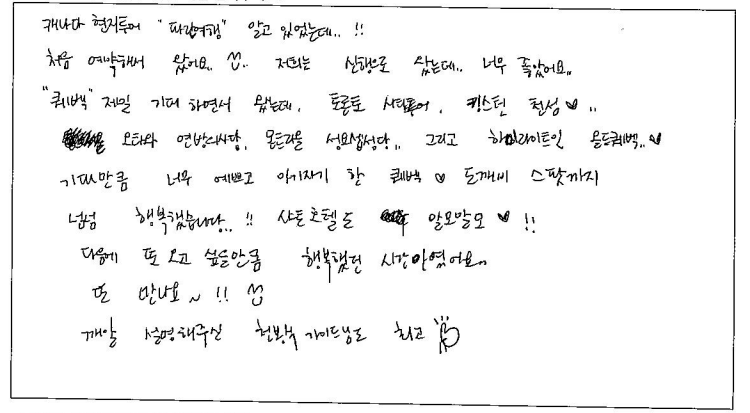 캐나다 현지투어 "파란여행" 알고 있었는데.. !!
처음 예약해서 왔어요.. 저희는 신행으로 왔는데.. 너무 좋았어요..
"퀘벡" 제일 기대 하면서 왔는데, 토론토 시티투어, 킹스턴 천섬♥..
오타와 연방의사당, 몬트리올 성요셉성당.. 그리고 하이라이트인 올드퀘벡..♥
기대만큼 너무 예쁘고 아기자기 한 퀘벡♥ 도깨비 스팟까지
넘넘 행복했습니다..!! 샤토호텔도 알모말모♥ !!
다음에 또 오고 싶을만큼 행복했던 시간이였어요..
또 만나요~ !!
깨알 설명해주신 가이드님도 최고